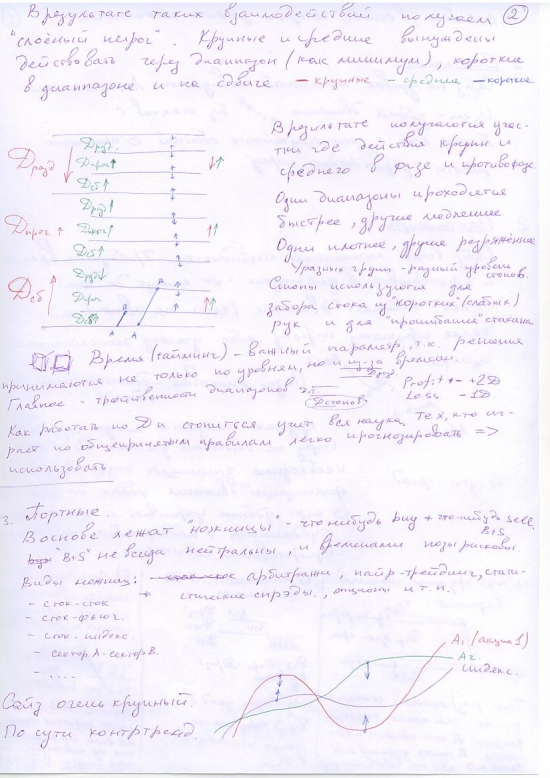 В результате таких взаимодействий получаем 2
"слоёный пирог". Крупные и средние вынуждены
действовать через диапазон (как минимум), короткие
в диапазоне и на сдвиге – крупные – средние – короткие
В результате получаются участки
где действия крупн. и
среднего в фазе и противофазе.
Одни диапазоны проходятся
быстрее, другие медленнее
Одни плотнее, другие разряжённее
У разных групп - разный уровень стопов.
Стопы используются для
забора стока из "коротких" (слабых)
рук и для "прошибания" стакана
Dразд ↓
Dпрог ↑
Dсб ↑
Dразд.
Dпрог ↑
Dсб ↑
Dразд ↑
Dпрог ↑
Dсб ↑
Dразд ↓
Dпрог
Dсб ↑
A B
A B
Время (тайминг) - важный параметр, т.к. решения
принимаются не только по уровням, но и из-за времени.
Главное - тройственность диапазонов
Dстопов
Profit +- +2D
Loss - 1D
Как работать по D и стопиться учит вся наука. Тех, кто играет
по общепринятым правилам легко прогнозировать =>
использовать
3. Портные.
В основе лежат "ножницы" - что-нибудь buy + что-нибудь sell.
B+S
"B+S" не всегда нейтральны, и временами позы рисковы.
Виды ножниц: арбитражи, пайр-трейдинг, статистические
спрэды., опционы и т.п.
- сток-сток
- сток-фьюч.
- сток-индекс.
- сектор A-сектор B.
- ....
A1 (акция 1)
A2
Индекс.
Сайз очень крупный.
По сути контртренд.